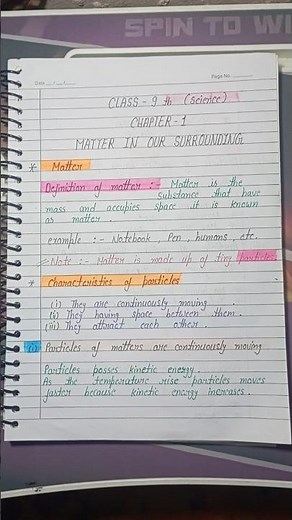 SPIN TO WI
Date
Page No.
CLASS - 9 th (science)
CHAPTER - 1
MATTER IN OUR SURROUNDING
* Matter
Definition of matter :- Matter is the
Substance that have
mass and accupies space it is known
as matter.
example :- Notebook, Pen, humans, etc.
Note :- Matter is made up of tiny particles
* Characteristics of particles
(i) They are continuously moving.
(ii) They having space between them.
(iii) They attract each other.
(i) Particles of matters are continuously moving
Particles posses kinetic energy.
As the temperature rise particles moves
faster because kinetic energy increases.